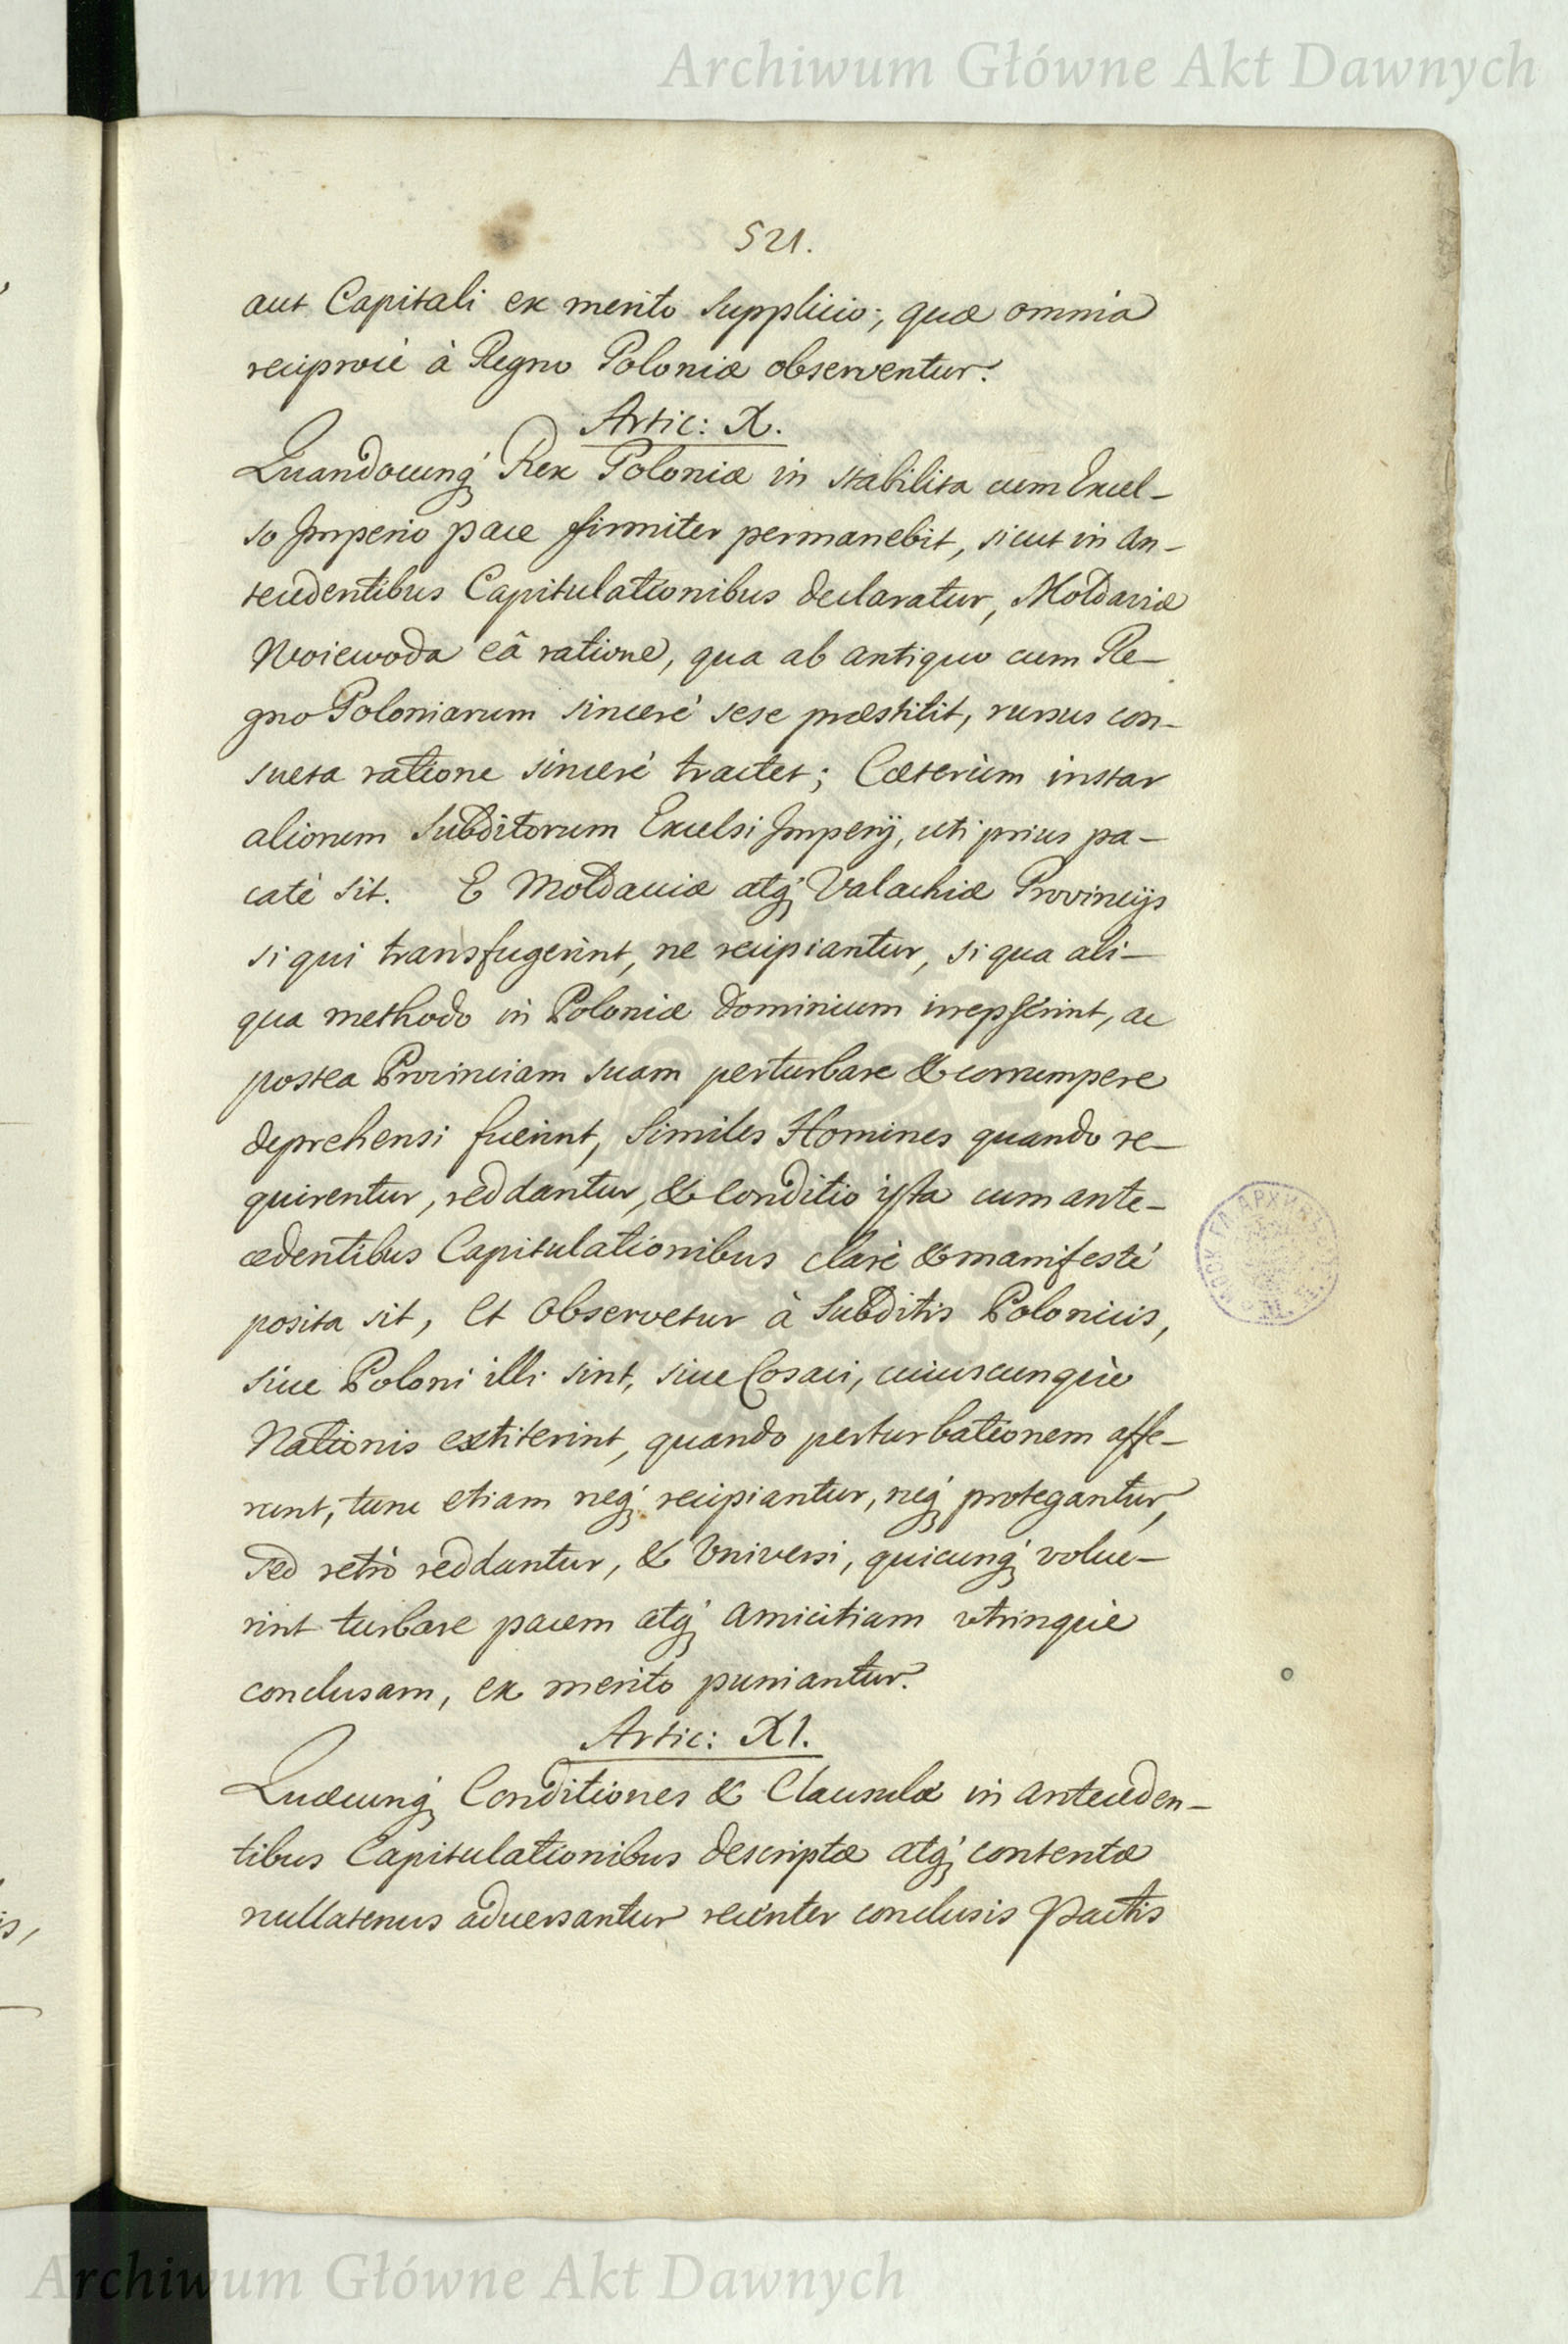 Archiwum Główne Akt Dawnych
521.
aut Capitali ex merito supplicio; quæ omnia
reciprocé à Regno Poloniæ observentur.
Artic: X.
Quandocunq́ Rex Poloniæ in stabilita cum Excel-
so Imperio pace firmiter permanebit, sicut in an-
tecedentibus Capitulationibus declaratur, Moldaviæ
Woiewoda eâ ratione, qua ab antiquo cum Re-
gno Poloniarum sinceré sese præstitit, rursus con-
sueta ratione sinceré tractet; Cæterùm instar
aliorum Subditorum Excelsi Imperij, uti prius pa-
caté sit. E Moldauiæ atq́ Valachiæ Provincijs
si qui transfugerint, ne recipiantur, si qua ali-
qua methodo in Poloniæ Dominium irrepserint, ac
postea Provinciam suam perturbare & corrumpere
deprehensi fuerint, Similes Homines quando re-
quirentur, reddantur, & Conditio ista cum ante-
cedentibus Capitulationibus claré & manifesté
posita sit, et observetur à Subditis Polonicis,
siue Poloni illi sint, siue Cosaci, cuiuscunquè
Nationis extiterint, quando perturbationem affe-
runt, tunc etiam neq́ recipiantur, neq́ protegantur,
sed retrò reddantur, & Vniversi, quicunq́ volue-
rint turbare pacem atq́ amicitiam vtrinquè
conclusam, ex merito puniantur.
Artic: XI.
Quæcunq́ Conditiones & Clausulæ in anteceden-
tibus Capitulationibus descriptæ atq́ contentæ
nullatenus aduersantur recenter conclusis Pactis
Archiwum Główne Akt Dawnych